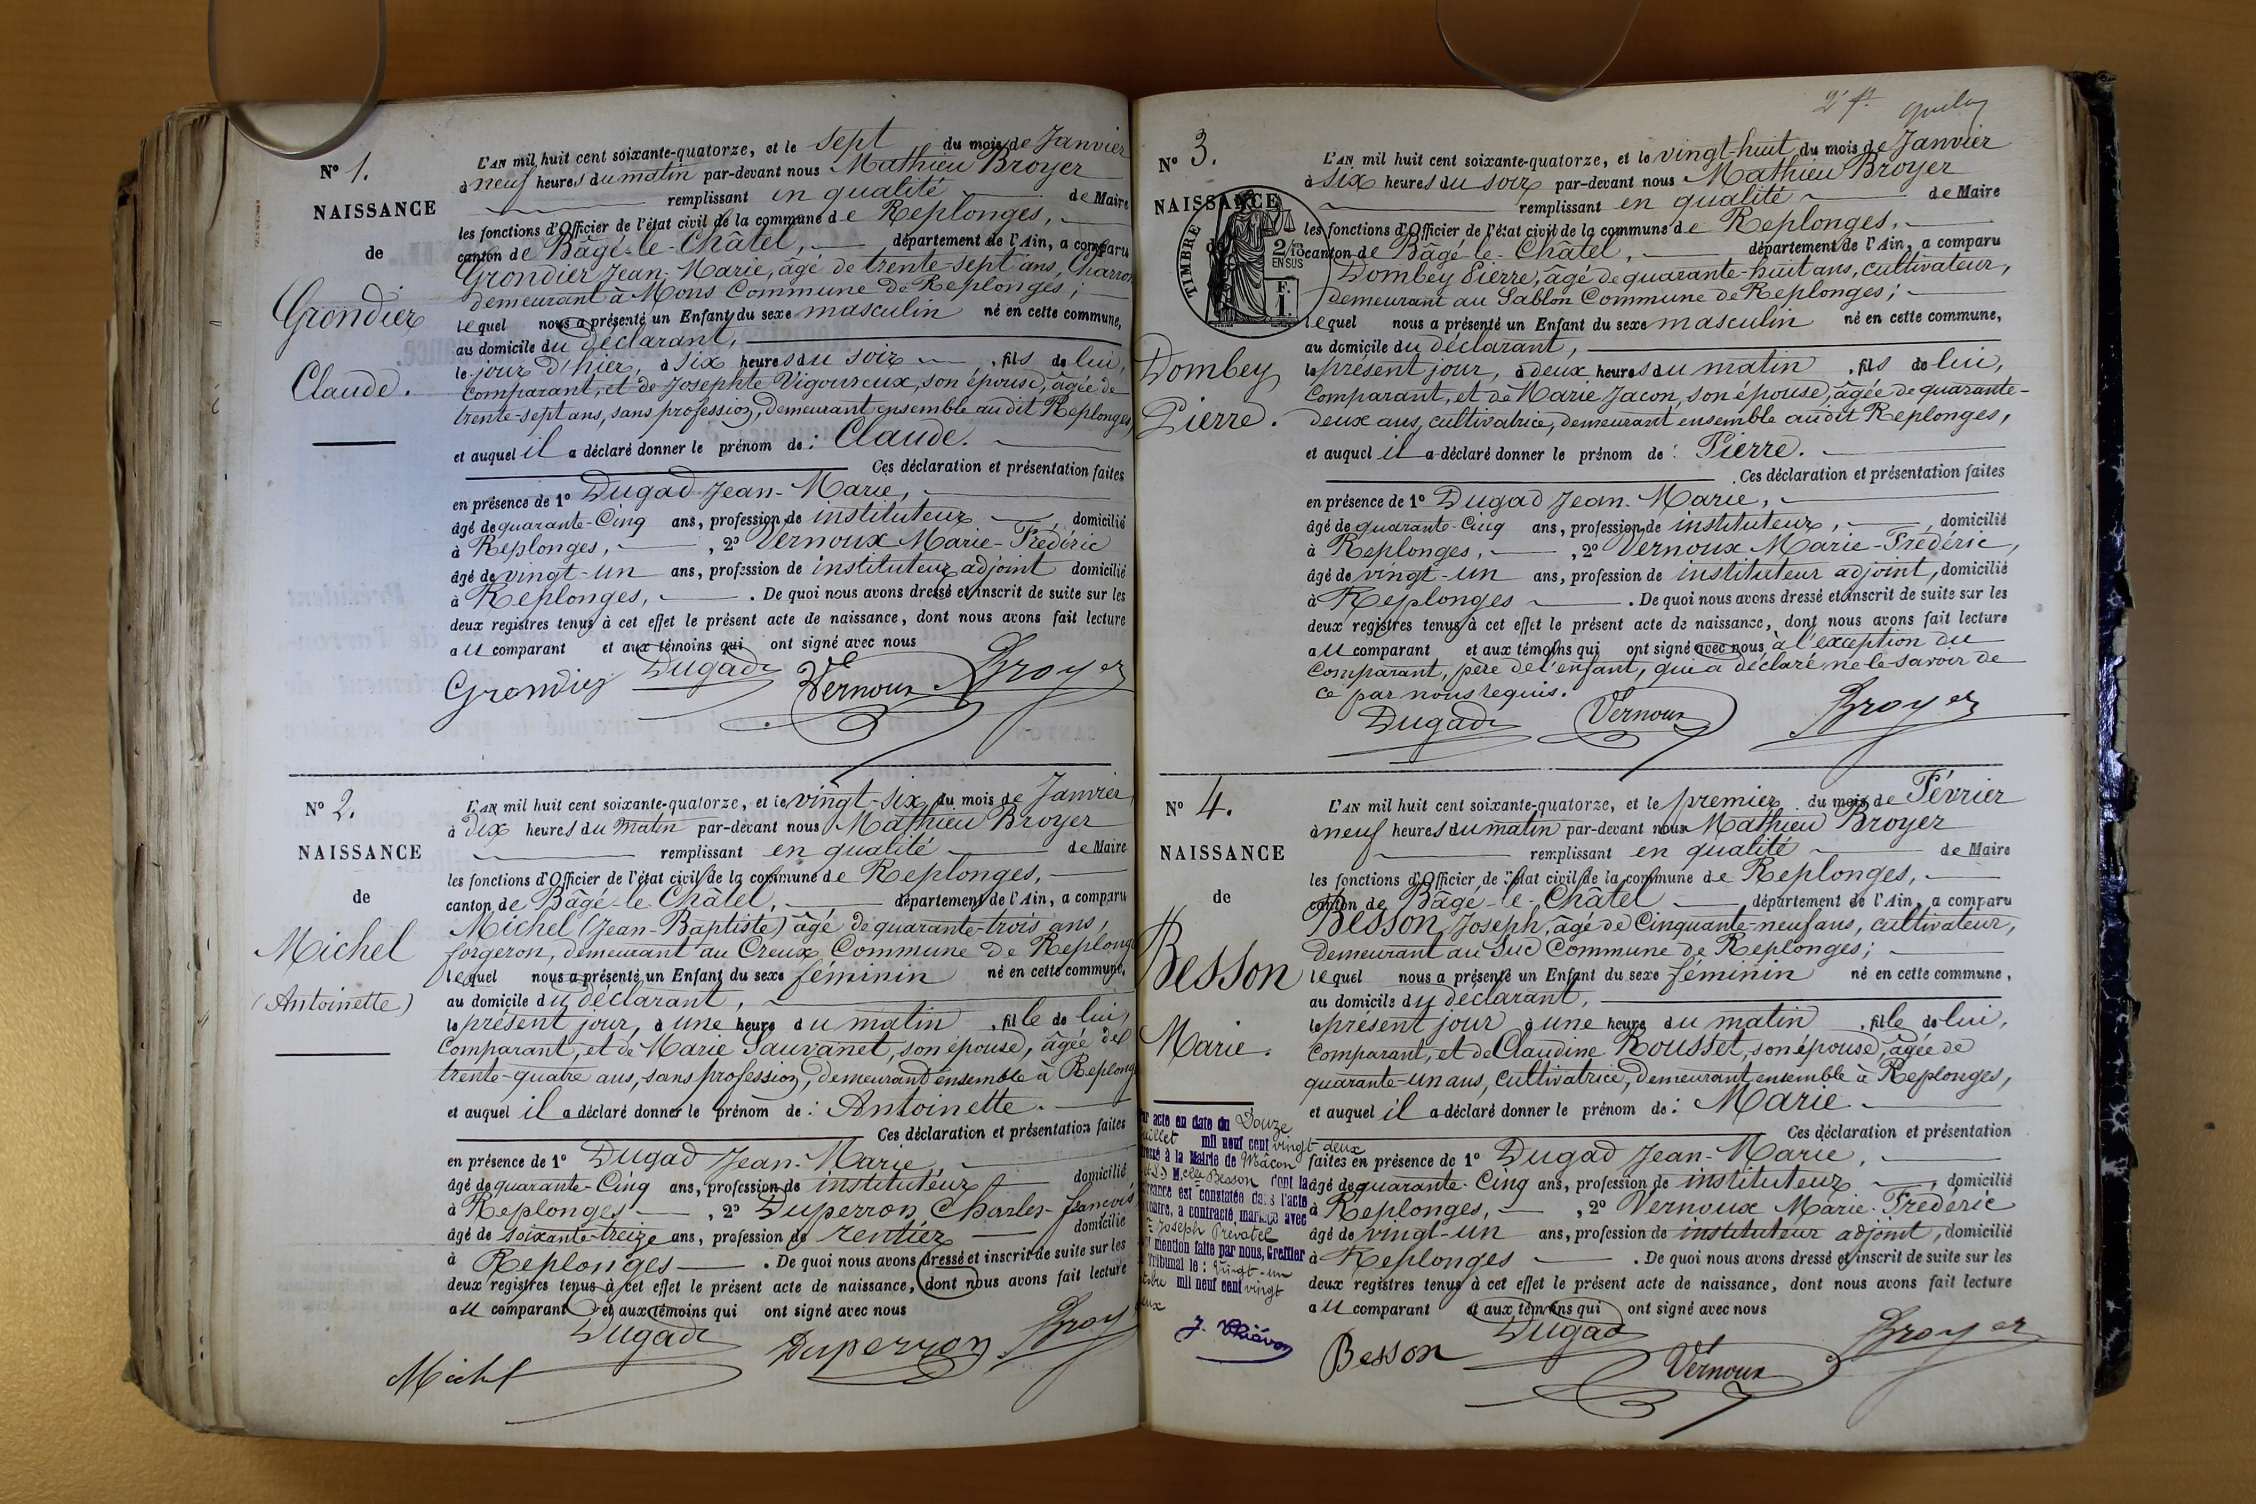 N° 1.
NAISSANCE
de
Grondier
Claude.
L'AN mil huit cent soixante-quatorze, et le sept du mois de Janvier
à neuf heures du matin par-devant nous Mathieu Broyer
remplissant en qualité de Maire
les fonctions d'Officier de l'état civil de la commune de Replonges,
canton de Bâgé-le-Châtel, département de l'Ain, a comparu
Grondier Jean-Marie, âgé de trente-sept ans, Charron
demeurant à Mons Commune de Replonges;
lequel nous a présenté un Enfant du sexe masculin né en cette commune,
au domicile du déclarant,
le jour d'hier, à six heures du soir, fils de lui,
Comparant, et de Josephte Vigoureux, son épouse, âgée de
trente-sept ans, sans profession, demeurant ensemble audit Replonges,
et auquel il a déclaré donner le prénom de: Claude.
Ces déclaration et présentation faites
en présence de 1° Dugad Jean-Marie,
âgé de quarante-Cinq ans, profession de instituteur domicilié
à Replonges, , 2° Vernoux Marie-Frédéric
âgé de vingt-un ans, profession de instituteur adjoint domicilié
à Replonges, . De quoi nous avons dressé et inscrit de suite sur les
deux registres tenus à cet effet le présent acte de naissance, dont nous avons fait lecture
au comparant et aux témoins qui ont signé avec nous
Grondier Dugad Vernoux Broyer
N° 2.
NAISSANCE
de
Michel
(Antoinette)
L'AN mil huit cent soixante-quatorze, et le vingt-six du mois de Janvier
à dix heures du matin par-devant nous Mathieu Broyer
remplissant en qualité de Maire
les fonctions d'Officier de l'état civil de la commune de Replonges,
canton de Bâgé-le-Châtel, département de l'Ain, a comparu
Michel (Jean-Baptiste) âgé de quarante-trois ans,
forgeron, demeurant au Creux Commune de Replong
lequel nous a présenté un Enfant du sexe féminin né en cette commune,
au domicile du déclarant,
le présent jour, à une heure du matin, fille de lui,
Comparant, et de Marie Sauvanet, son épouse, âgée de
trente-quatre ans, sans profession, demeurant ensemble à Replong
et auquel il a déclaré donner le prénom de: Antoinette.
Ces déclaration et présentation faites
en présence de 1° Dugad Jean-Marie,
âgé de quarante-Cinq ans, profession de instituteur domicilié
à Replonges , 2° Duperron Charles-francois
âgé de soixante-treize ans, profession de rentier domicilié
à Replonges . De quoi nous avons dressé et inscrit de suite sur les
deux registres tenus à cet effet le présent acte de naissance, dont nous avons fait lecture
au comparant et aux témoins qui ont signé avec nous
Michel Dugad Duperron Broy
N° 3.
NAISSANCE
de
TIMBRE
2/10
EN SUS
F.
1.
Dombey
Pierre.
L'AN mil huit cent soixante-quatorze, et le vingt-huit du mois de Janvier
à six heures du soir par-devant nous Mathieu Broyer
remplissant en qualité de Maire
les fonctions d'Officier de l'état civil de la commune de Replonges,
canton de Bâgé-le-Châtel, département de l'Ain, a comparu
Dombey Pierre, âgé de quarante-huit ans, cultivateur,
demeurant au Sablon Commune de Replonges;
lequel nous a présenté un Enfant du sexe masculin né en cette commune,
au domicile du déclarant,
le présent jour, à deux heures du matin, fils de lui,
Comparant, et de Marie Jacon, son épouse, âgée de quarante-
deux ans, cultivatrice, demeurant ensemble audit Replonges,
et auquel il a déclaré donner le prénom de: Pierre.
Ces déclaration et présentation faites
en présence de 1° Dugad Jean-Marie,
âgé de quarante-Cinq ans, profession de instituteur, domicilié
à Replonges, , 2° Vernoux Marie-Frédéric,
âgé de vingt-un ans, profession de instituteur adjoint, domicilié
à Replonges . De quoi nous avons dressé et inscrit de suite sur les
deux registres tenus à cet effet le présent acte de naissance, dont nous avons fait lecture
au comparant et aux témoins qui ont signé avec nous, à l'exception du
Comparant, père de l'enfant, qui a déclaré ne le savoir de
ce par nous requis.
Dugad Vernoux Broyer
N° 4.
NAISSANCE
de
Besson
Marie.
L'AN mil huit cent soixante-quatorze, et le premier du mois de Février
à neuf heures du matin par-devant nous Mathieu Broyer
remplissant en qualité de Maire
les fonctions d'Officier de l'état civil de la commune de Replonges,
canton de Bâgé-le-Châtel département de l'Ain, a comparu
Besson Joseph, âgé de Cinquante-neuf ans, cultivateur,
demeurant au Suc Commune de Replonges;
lequel nous a présenté un Enfant du sexe féminin né en cette commune,
au domicile du déclarant,
le présent jour à une heure du matin, fille de lui,
Comparant, et de Claudine Rousset, son épouse, âgée de
quarante-un ans, cultivatrice, demeurant ensemble à Replonges,
et auquel il a déclaré donner le prénom de: Marie
Ces déclaration et présentation
faites en présence de 1° Dugad Jean-Marie,
âgé de quarante-Cinq ans, profession de instituteur, domicilié
à Replonges, , 2° Vernoux Marie-Frédéric
âgé de vingt-un ans, profession de instituteur adjoint, domicilié
à Replonges . De quoi nous avons dressé et inscrit de suite sur les
deux registres tenus à cet effet le présent acte de naissance, dont nous avons fait lecture
au comparant et aux témoins qui ont signé avec nous
Besson Dugad Vernoux Broyer
acte en date du Douze
juillet mil neuf cent vingt-deux
à la Mairie de Mâcon
Besson dont la
naissance est constatée dans l'acte
contre, a contracté mariage avec
Joseph Prevatel
mention faite par nous, Greffier
Tribunal le: Vingt-un
mil neuf cent vingt
deux